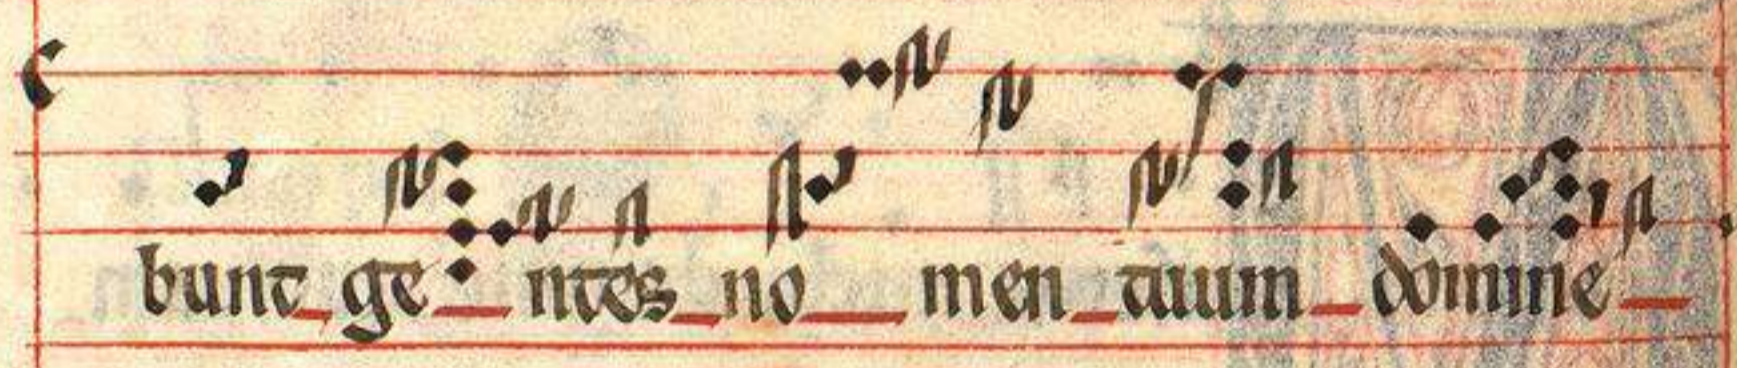 bunt gentes nomen tuum domine